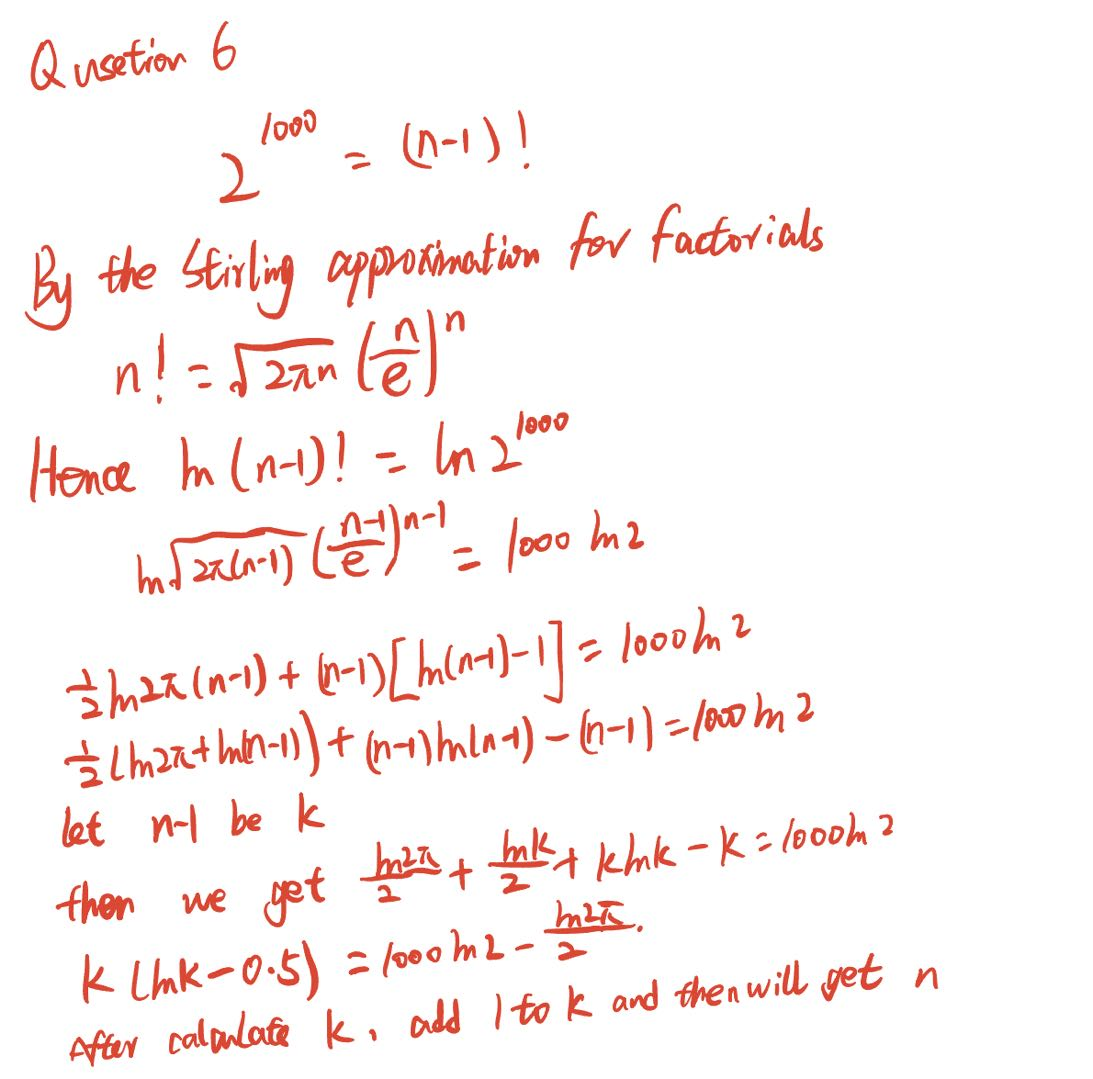 Qusetion 6
2^1000 = (n-1)!
By the Stirling approximation for factorials
n! = √(2πn) (n/e)^n
Hence ln (n-1)! = ln 2^1000
ln √(2π(n-1)) ((n-1)/e)^(n-1) = 1000 ln 2
1/2 ln 2π (n-1) + (n-1) [ln(n-1) - 1] = 1000 ln 2
1/2 (ln 2π + ln(n-1)) + (n-1) ln(n-1) - (n-1) = 1000 ln 2
let n-1 be k
then we get (ln 2π)/2 + (ln k)/2 + k ln k - k = 1000 ln 2
k (ln k - 0.5) = 1000 ln 2 - (ln 2π)/2.
After calculate k, add 1 to k and then will get n